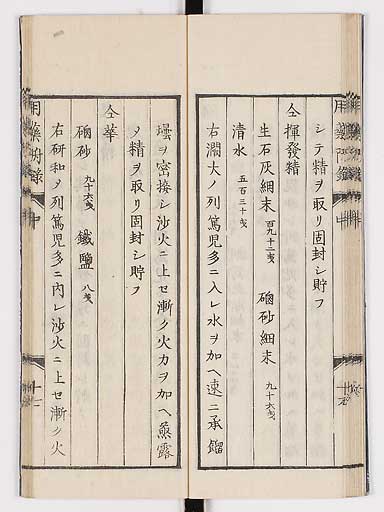 シテ精ヲ取リ固封シ貯フ
仝揮發精
生石灰細末 百九十二戔 硇砂細末 九十六戔
清水 五百三十戔
右濶大ノ列篤児多ニ入レ水ヲ加ヘ速ニ承餾
壜ヲ密接シ沙火ニ上セ漸ク火力ヲ加ヘ蒸露
〆精ヲ取リ固封シ貯フ
仝華
硇砂 九十六戔 鐵鹽 八戔
右研和〆列篤児多ニ内レ沙火ニ上セ漸ク火
中
十七